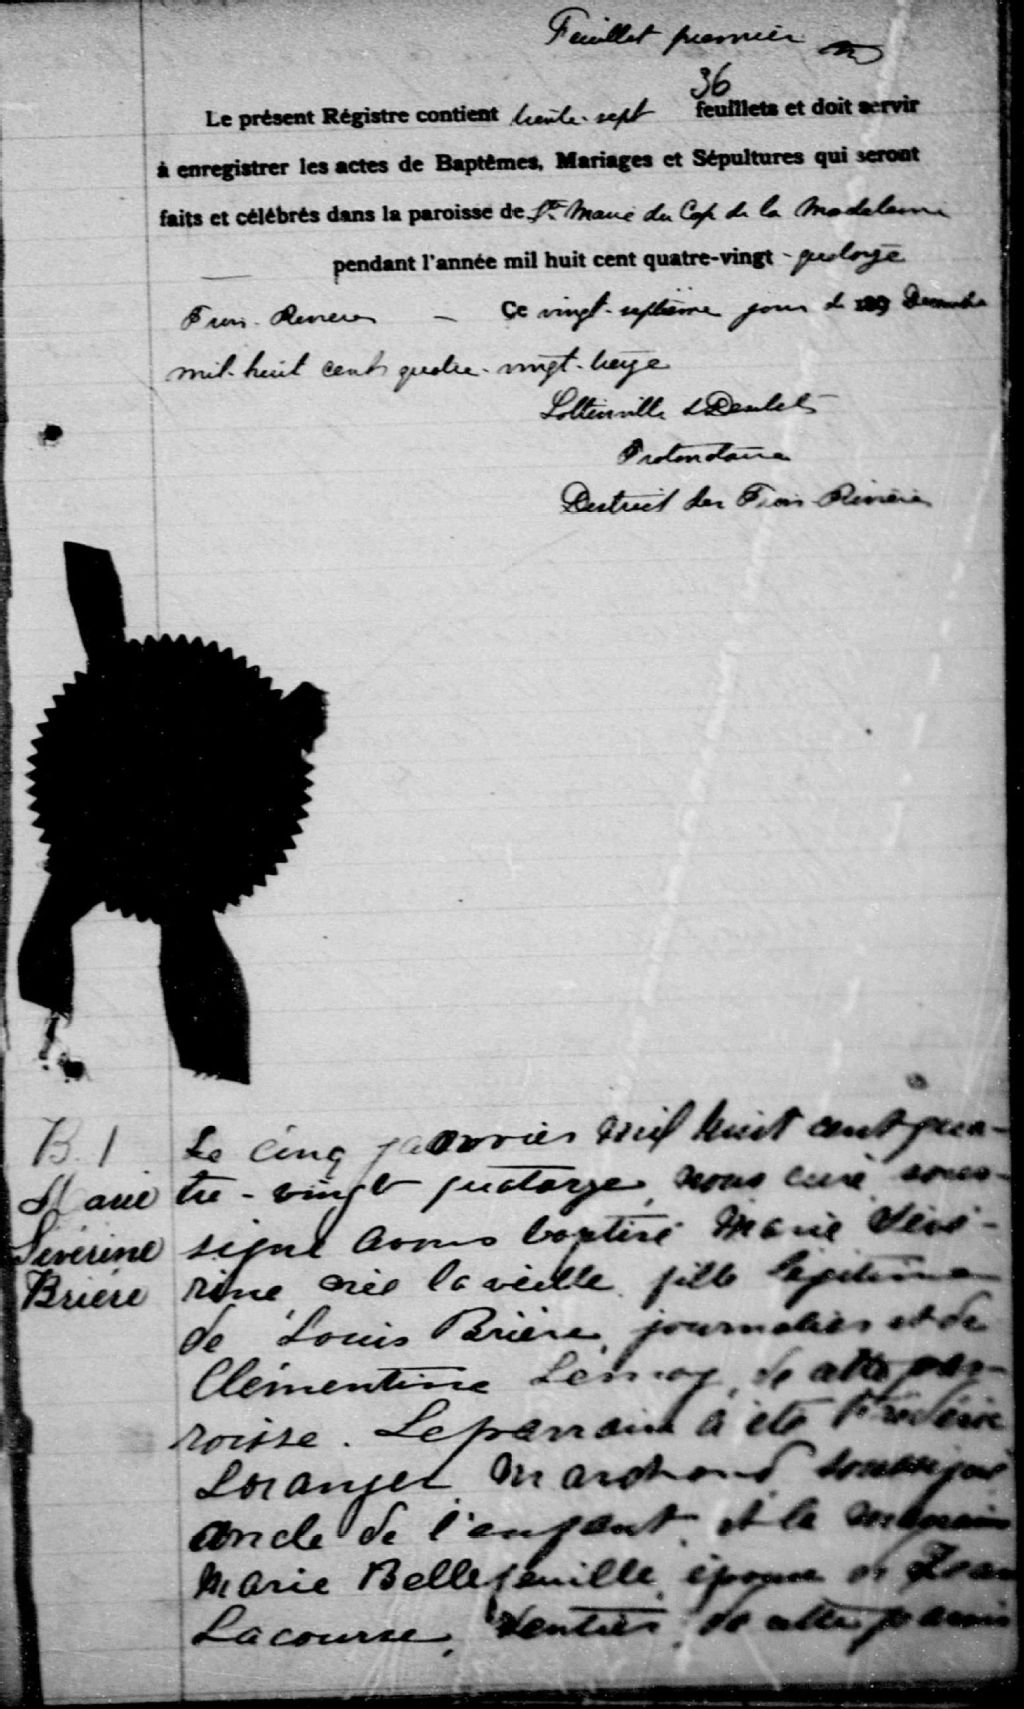 Feuillet premier
36
Le présent Régistre contient trente-sept feuillets et doit servir
à enregistrer les actes de Baptêmes, Mariages et Sépultures qui seront
faits et célébrés dans la paroisse de Ste Marie du Cap de la Madeleine
pendant l'année mil huit cent quatre-vingt-quatorze
Trois-Rivières — Ce vingt-septième jour de 189 Décembre
mil-huit cent quatre-vingt-treize
Lottinville & Désilets
Protonotaire
District des Trois-Rivières
B. 1
Marie
Séverine
Brière
Le cinq janvier mil huit cent qua-
tre-vingt quatorze, nous curé sous-
signé avons baptisé Marie Séve-
rine, née la veille, fille légitime
de Louis Brière, journalier et de
Clémentine de cette pa-
roisse. Le parrain a été
Loranger Marchand soussigné
oncle de l'enfant et la marraine
Marie Bellefeuille, épouse de Jean
Lacourse, rentier, de cette paroisse